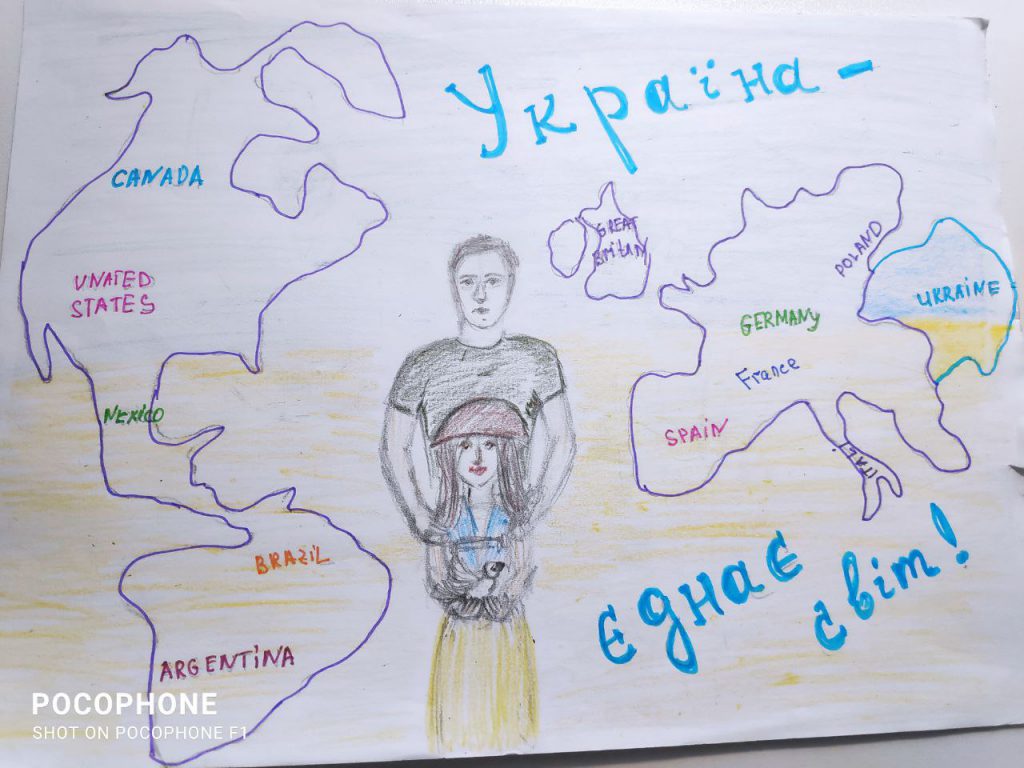 Україна -
CANADA
UNATED
STATES
MEXICO
BRAZIL
ARGENTINA
GREAT
BRitAN
POLAND
UKRAINE
GERMANY
France
SPAIN
ITALI
єднає
світ!
POCOPHONE
SHOT ON POCOPHONE F1